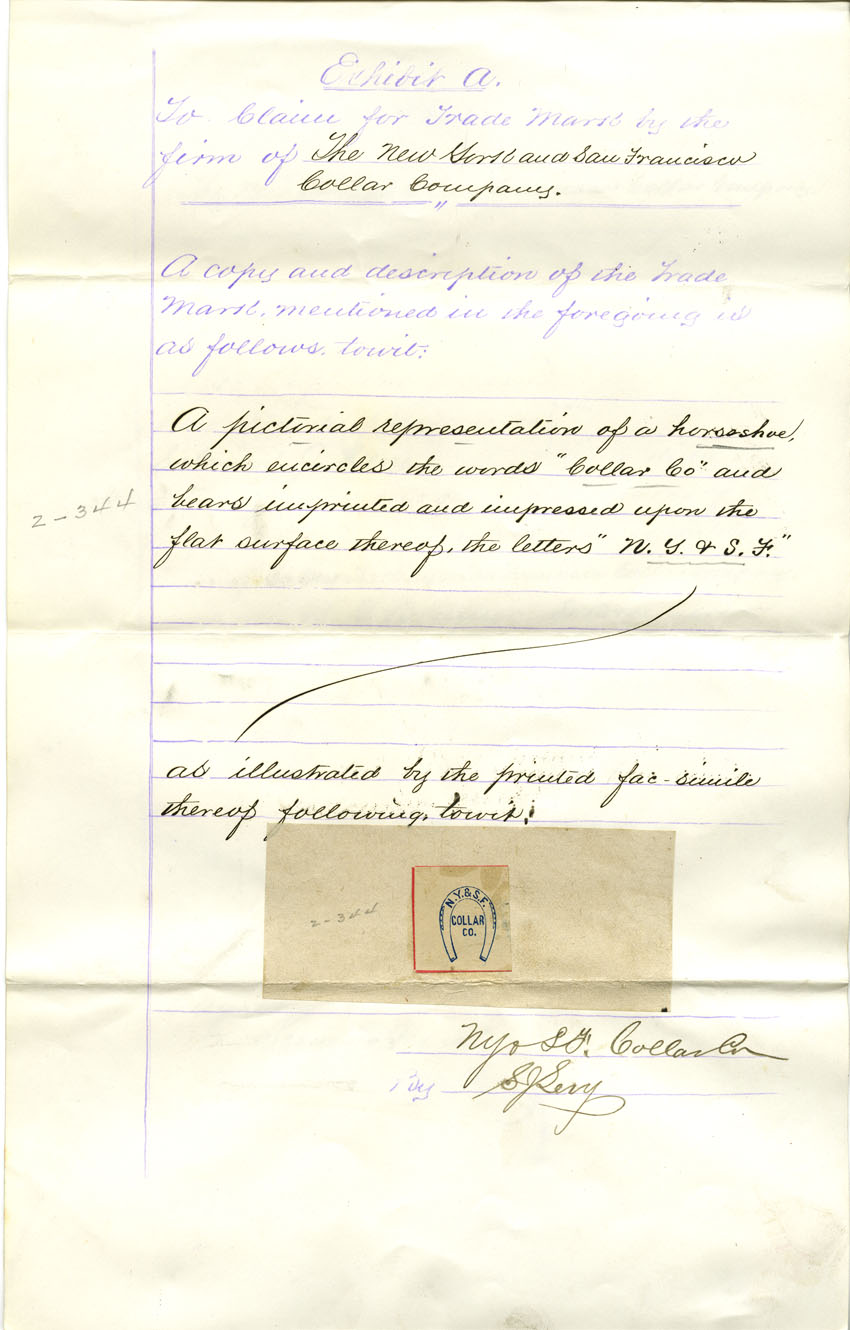 Exhibit A.
To Claim for Trade Mark by the
firm of The New York and San Francisco
Collar Company.
"
A copy and description of the Trade
Mark, mentioned in the foregoing is
as follows, towit:
A pictorial representation of a horseshoe,
which encircles the words "Collar Co" and
bears imprinted and impressed upon the
flat surface thereof, the letters "N. Y. & S. F."
2-344
as illustrated by the printed fac-simile
thereof following, towit:
2-344
N.Y.&S.F.
COLLAR
CO.
NY & S F. Collar Co
By S J Levy